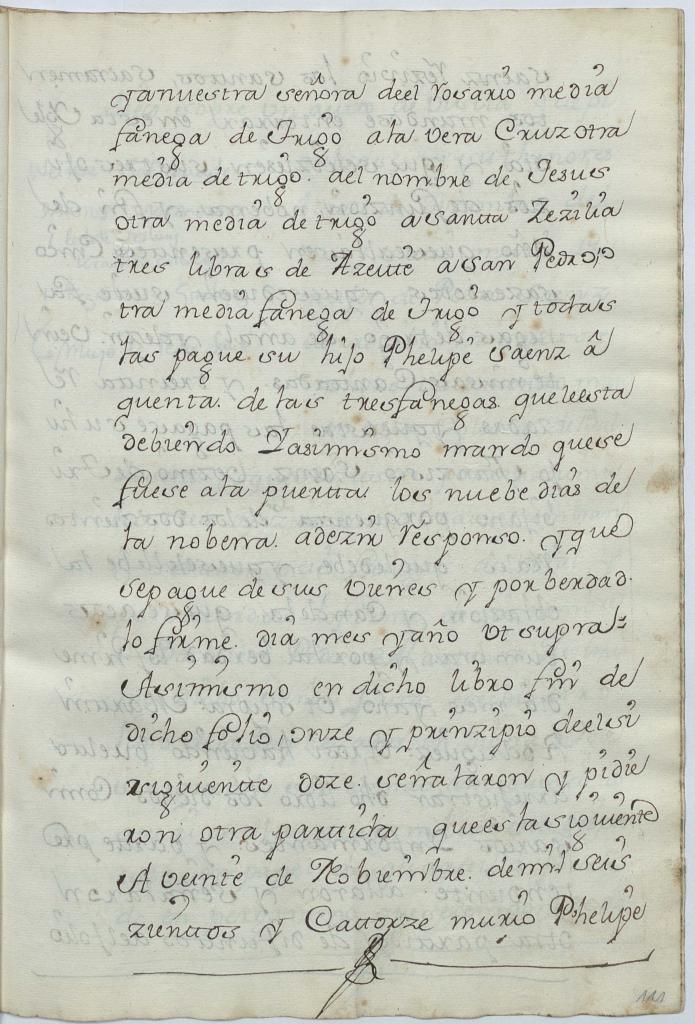 ya nuestra señora deel rosario media
fanega de Trigo ala vera Cruz otra
media de trigo. ael nombre de Jesus
otra media de trigo a santta Zezilia
tres libras de Azeitte a san Pedro o
tra media fanega de Trigo y todas
las pague su hijo Phelipe saenz â
quenta. de las tres fanegas. que le esta
debiendo Yasimismo mando que se
fuese ala puertta los nuebe dias de
la nobena. a dezir responso. y que
se pague de sus vienes y por berdad.
lo firme. dia mes y año vt supra=
Asimismo en dicho libro fin de
dicho folio, onze y prinzipio deel si
siguientte doze. señalaron y pidie
ron otra partida que es la siguiente
A veinte de Nobiembre. de mil seis
zienttos y Cattorze murio Phelipe
111